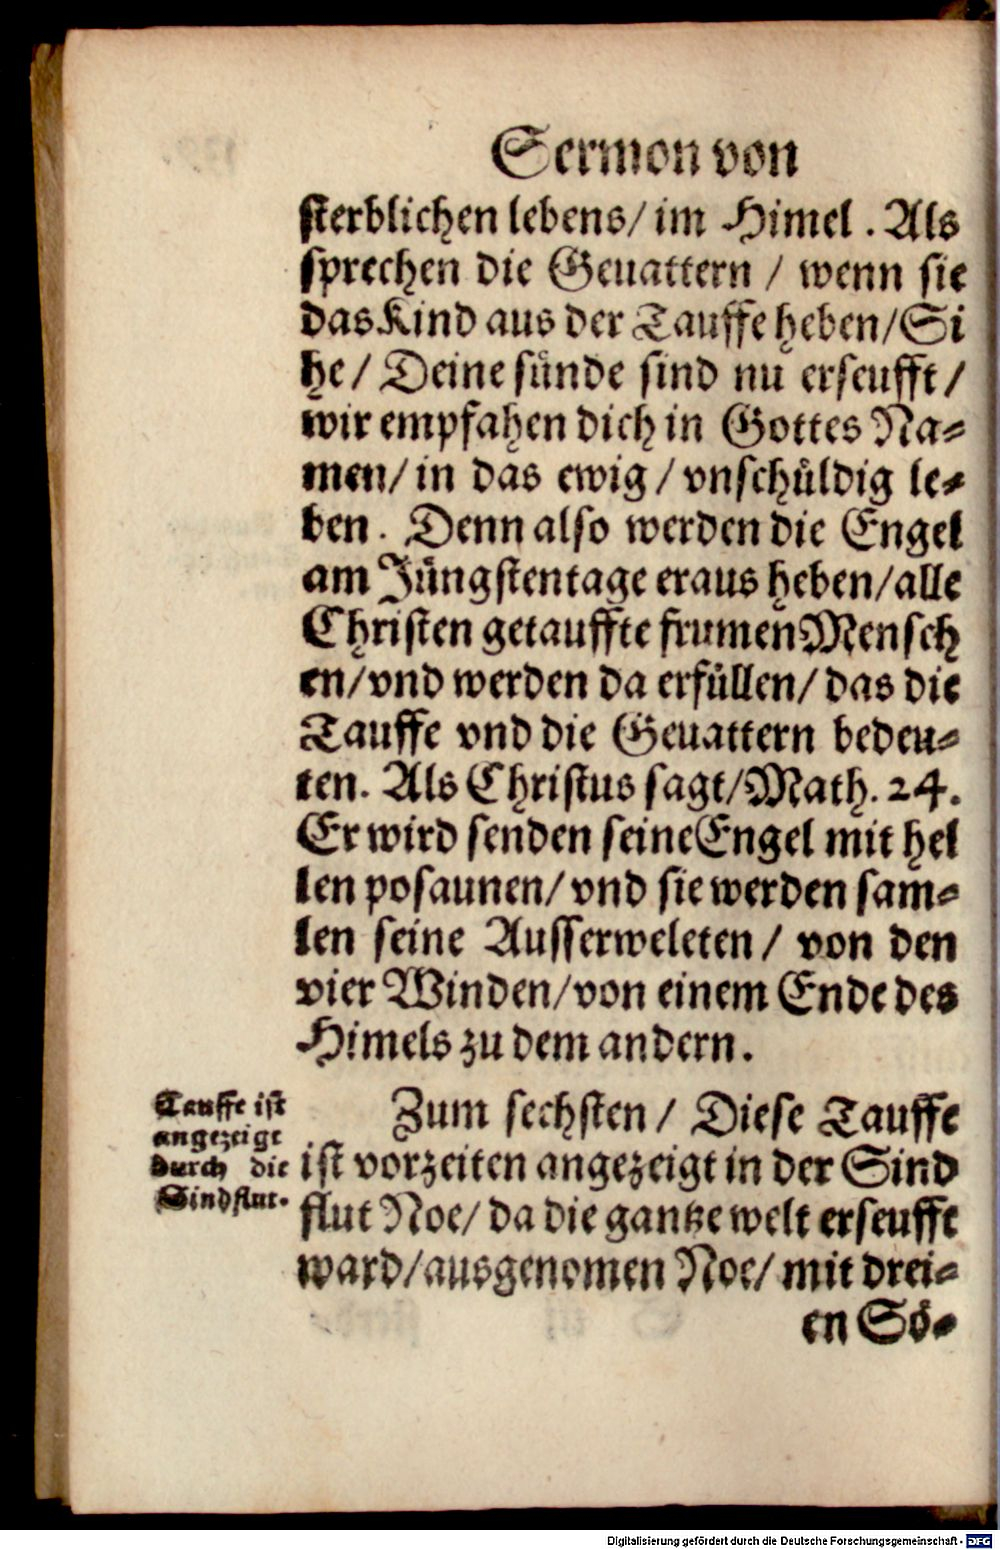 Sermon von
sterblichen lebens/ im Himel. Als
sprechen die Geuattern / wenn sie
das Kind aus der Tauffe heben/ Si
he/ Deine sünde sind nu erseufft/
wir empfahen dich in Gottes Na-
men/ in das ewig/ vnschüldig le-
ben. Denn also werden die Engel
am Jüngstentage eraus heben/ alle
Christen getauffte frumen Mensch
en/ vnd werden da erfüllen/ das die
Tauffe vnd die Geuattern bedeu-
ten. Als Christus sagt/ Math. 24.
Er wird senden seine Engel mit hel
len posaunen/ vnd sie werden sam-
len seine Ausserweleten/ von den
vier Winden/ von einem Ende des
Himels zu dem andern.
Tauffe ist
angezeigt
durch die
Sindflut.
Zum sechsten/ Diese Tauffe
ist vorzeiten angezeigt in der Sind
flut Noe/ da die gantze welt erseufft
ward/ ausgenomen Noe/ mit drei-
en Sö-
Digitalisierung gefördert durch die Deutsche Forschungsgemeinschaft - DFG